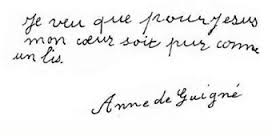 Je veu que pour Jesus
mon cœur soit pur comme
un lis.
Anne de Guigné